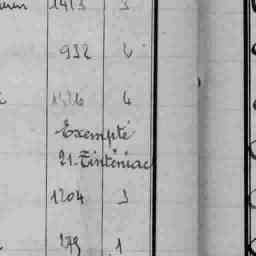 1413 3
932
1426 4
Exempté
21. Tinténiac
1204 3
279 1